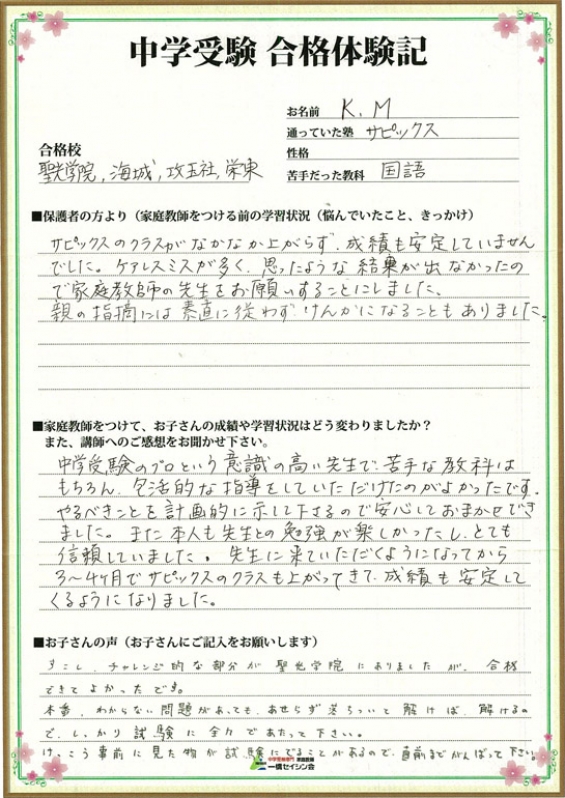 中学受験 合格体験記
お名前 K.M
通っていた塾 サピックス
合格校
性格
聖光学院, 海城, 攻玉社, 栄東
苦手だった教科 国語
■保護者の方より（家庭教師をつける前の学習状況（悩んでいたこと、きっかけ）
サピックスのクラスがなかなか上がらず、成績も安定していません
でした。ケアレスミスが多く、思ったような結果が出なかったの
で家庭教師の先生をお願いすることにしました。
親の指摘には素直に従わず、けんかになることもありました。
■家庭教師をつけて、お子さんの成績や学習状況はどう変わりましたか？
また、講師へのご感想をお聞かせ下さい。
中学受験のプロという意識の高い先生で、苦手な教科は
もちろん、包活的な指導をしていただけたのがよかったです。
やるべきことを計画的に示して下さるので安心しておまかせでき
ました。また本人も先生との勉強が楽しかったし、とても
信頼していました。先生に来ていただくようになってから
3〜4ヶ月でサピックスのクラスも上がってきて、成績も安定して
くるようになりました。
■お子さんの声（お子さんにご記入をお願いします）
すこし、チャレンジ的な部分が聖光学院にありましたが、合格
できてよかったです。
本番、わからない問題があっても、あせらず落ちついて解けば、解けるの
で、しっかり試験に全力であたって下さい。
けっこう事前に見た物が試験にでることがあるので、直前までがんばって下さい。
中学受験専門 家庭教師
一橋セイシン会